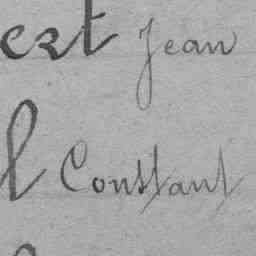 ert Jean
l Constant